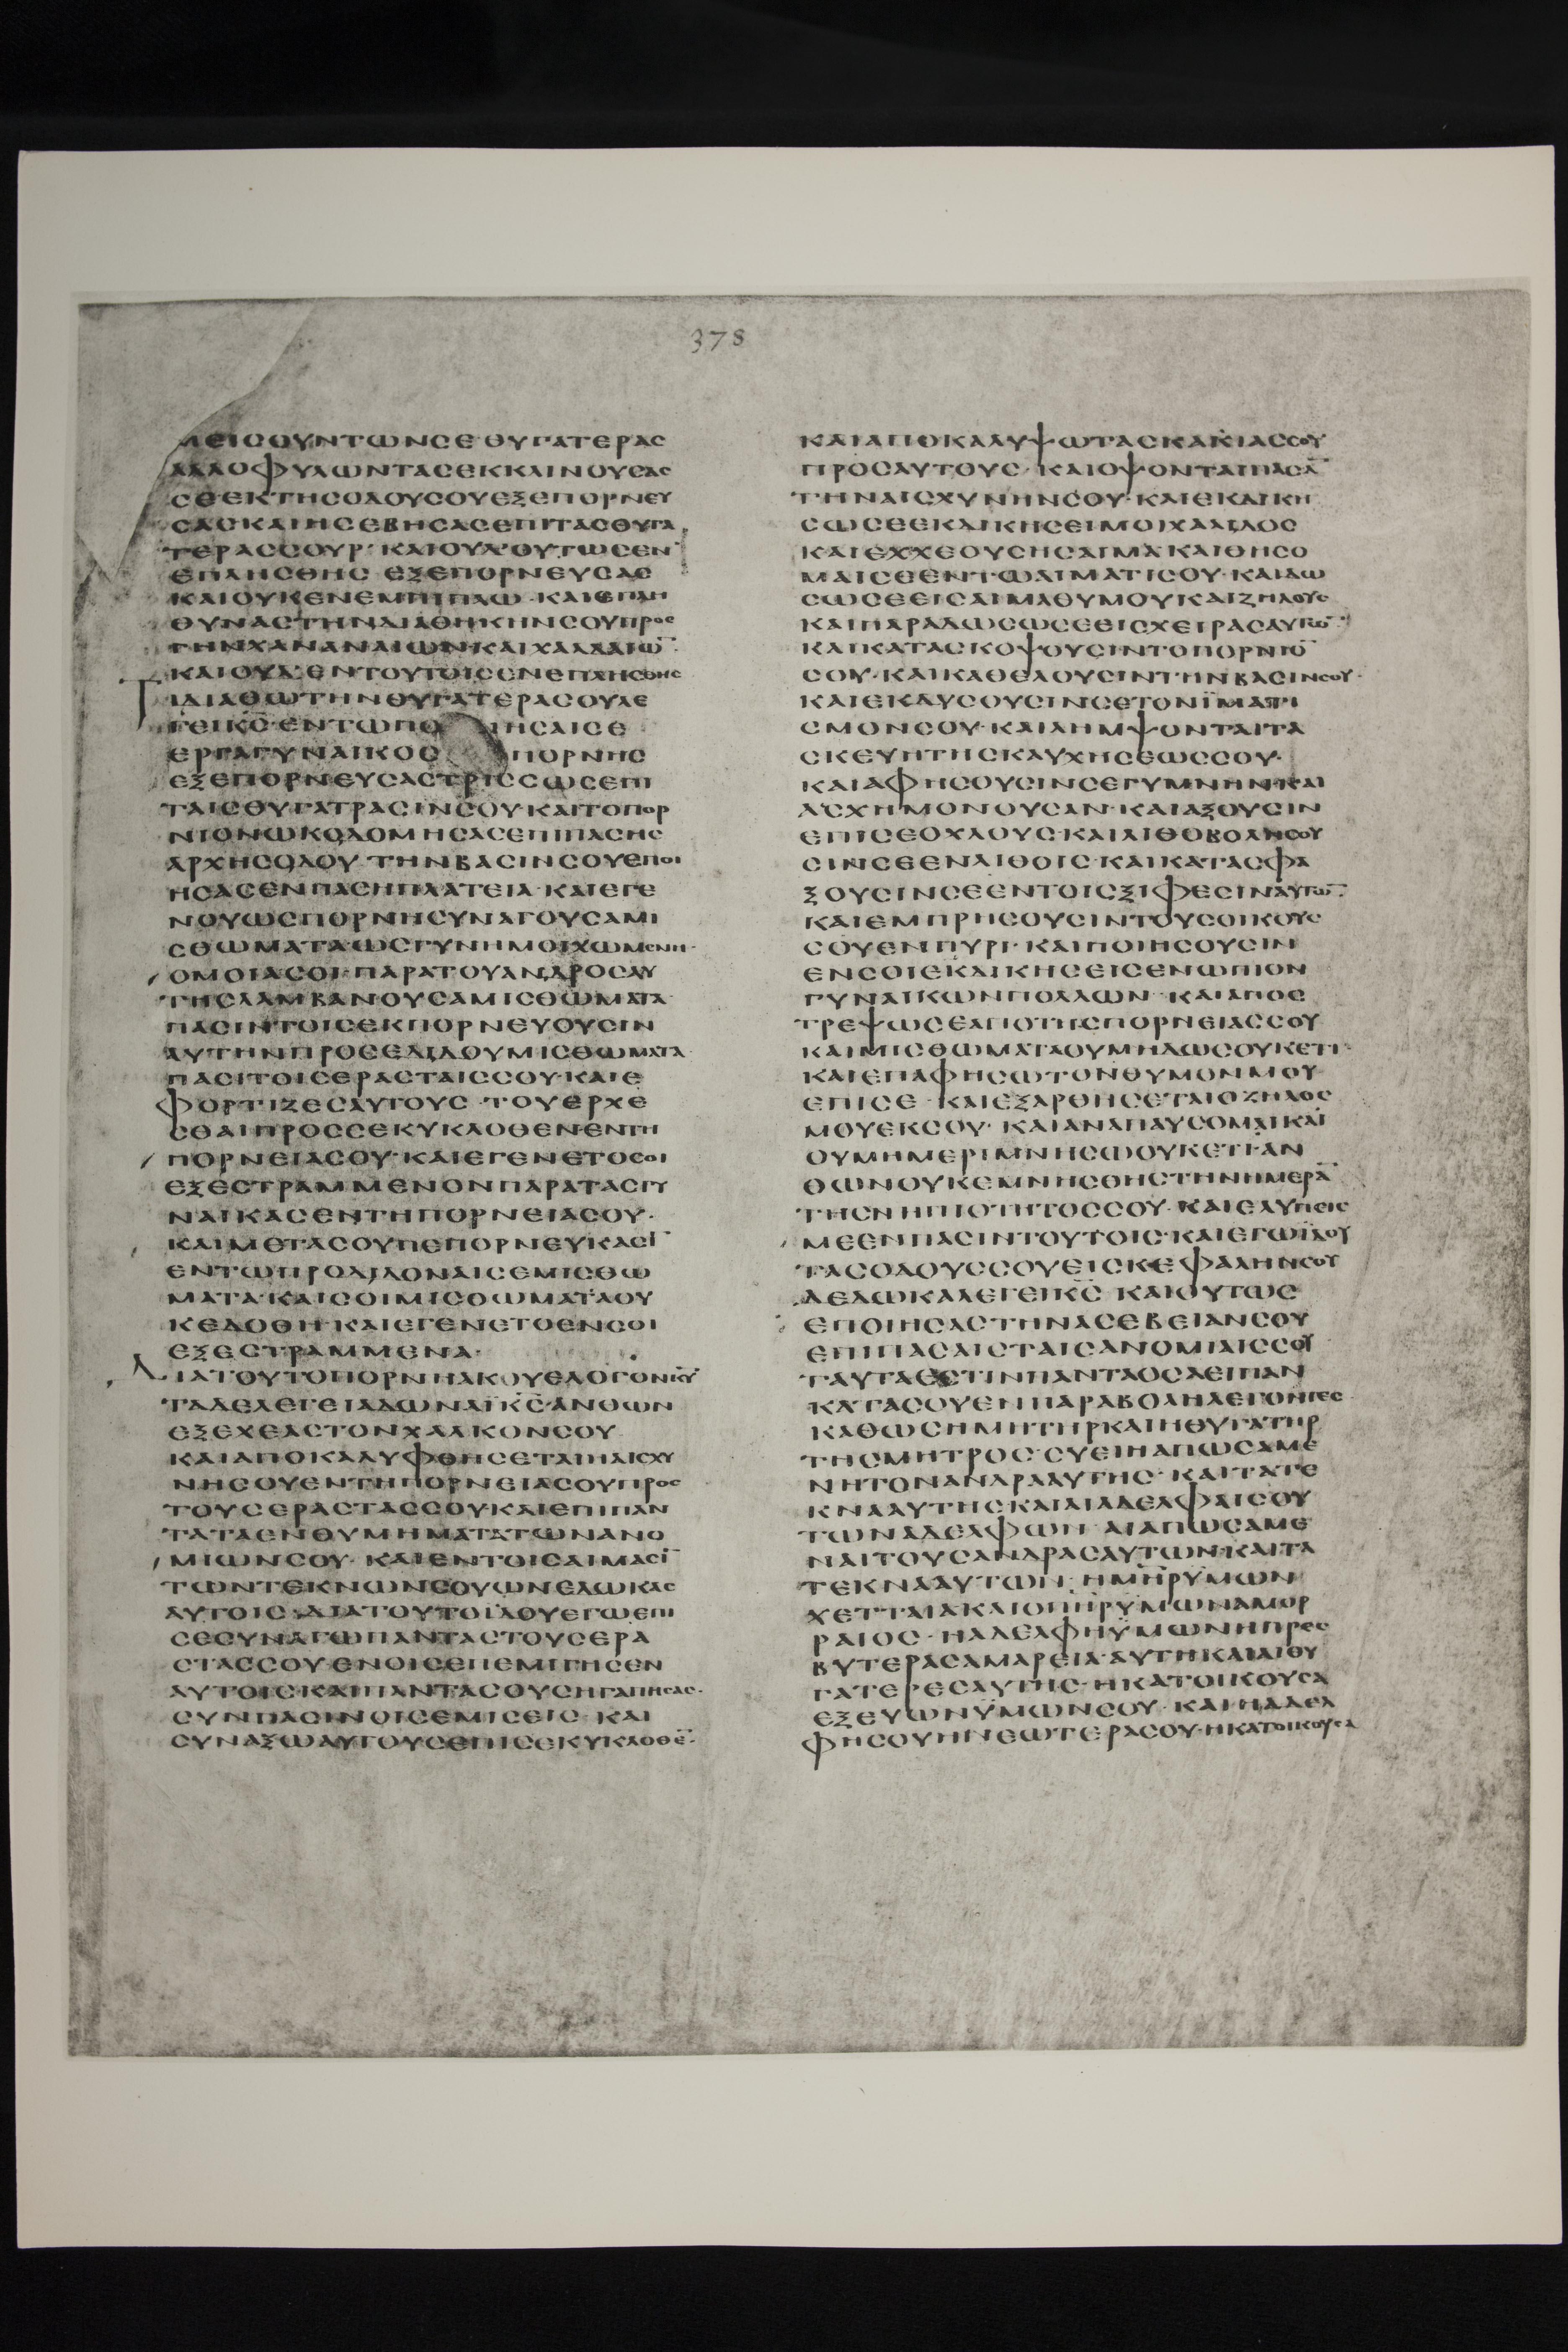 378
ΜΕΙΣΟΥΝΤΩΝΣΕ ΘΥΓΑΤΕΡΑΣ
ΑΛΛΟΦΥΛΩΝΤΑΣΕΚΚΛΙΝΟΥΣΑΣ
ΣΕΕΚΤΗΣΟΔΟΥΣΟΥΕΞΕΠΟΡΝΕΥ
ΣΑΣΚΑΙΗΣΕΒΗΣΑΣΕΠΙΤΑΣΘΥΓΑ
ΤΕΡΑΣΣΟΥΡ· ΚΑΙΟΥΔΟΥΤΩΣΕΝ
ΕΠΛΗΣΘΗΣ ΕΞΕΠΟΡΝΕΥΣΑΣ
ΚΑΙΟΥΚΕΝΕΜΠΙΠΛΩ· ΚΑΙΕΠΛΗ
ΘΥΝΑΣΤΗΝΔΙΑΘΗΚΗΝΣΟΥΠΡΟΣ
ΤΗΝΧΑΝΑΝΑΙΩΝΚΑΙΧΑΛΔΑΙΩ̅·
ΚΑΙΟΥΔΕΝΤΟΥΤΟΙΣΕΝΕΠΛΗΣΘΗΣ
ΙΔΙΑΘΩΤΗΝΘΥΓΑΤΕΡΑΣΟΥΛΕ
ΓΕΙΚ̅Σ̅·ΕΝΤΩΠΟ ΙΗΣΑΙΣΕ
ΕΡΓΑΓΥΝΑΙΚΟΣ ΠΟΡΝΗΣ
ΕΞΕΠΟΡΝΕΥΣΑΣΤΡΙΣΣΩΣΕΠΙ
ΤΑΙΣΘΥΓΑΤΡΑΣΙΝΣΟΥ·ΚΑΙΤΟΠΟΡ
ΝΙΟΝΩΚΟΔΟΜΗΣΑΣΕΠΙΠΑΣΗΣ
ΑΡΧΗΣΟΔΟΥ·ΤΗΝΒΑΣΙΝΣΟΥΕΠΟΙ
ΗΣΑΣΕΝΠΑΣΗΠΛΑΤΕΙΑ·ΚΑΙΕΓΕ
ΝΟΥΩΣΠΟΡΝΗΣΥΝΑΓΟΥΣΑΜΙ
ΣΘΩΜΑΤΑ·ΩΣΓΥΝΗΜΟΙΧΩΜΕΝΗ·
ΟΜΟΙΑΣΟΙ·ΠΑΡΑΤΟΥΑΝΔΡΟΣΑΥ
ΤΗΣΛΑΜΒΑΝΟΥΣΑΜΙΣΘΩΜΑΤΑ
ΠΑΣΙΝΤΟΙΣΕΚΠΟΡΝΕΥΟΥΣΙΝ
ΑΥΤΗΝΠΡΟΣΕΔΙΔΟΥΜΙΣΘΩΜΑΤΑ
ΠΑΣΙΤΟΙΣΕΡΑΣΤΑΙΣΣΟΥ·ΚΑΙΕ
ΦΟΡΤΙΖΕΣΑΥΤΟΥΣ·ΤΟΥΕΡΧΕ
ΣΘΑΙΠΡΟΣΣΕΚΥΚΛΟΘΕΝΕΝΤΗ
ΠΟΡΝΕΙΑΣΟΥ·ΚΑΙΕΓΕΝΕΤΟΣΟΙ
ΕΞΕΣΤΡΑΜΜΕΝΟΝΠΑΡΑΤΑΣΓΥ
ΝΑΙΚΑΣΕΝΤΗΠΟΡΝΕΙΑΣΟΥ·
ΚΑΙΜΕΤΑΣΟΥΠΕΠΟΡΝΕΥΚΑΣΙ̅
ΕΝΤΩΠΡΟΔΙΔΟΝΑΙΣΕΜΙΣΘΩ
ΜΑΤΑ·ΚΑΙΣΟΙΜΙΣΘΩΜΑΤΑΟΥ
ΚΕΔΟΘΗ·ΚΑΙΕΓΕΝΕΤΟΕΝΣΟΙ
ΕΞΕΣΤΡΑΜΜΕΝΑ·
ΔΙΑΤΟΥΤΟΠΟΡΝΗΑΚΟΥΕΛΟΓΟΝΚ̅Υ̅
ΤΑΔΕΛΕΓΕΙΑΔΩΝΑΪΚ̅Σ̅·ΑΝΘΩΝ
ΕΞΕΧΕΑΣΤΟΝΧΑΛΚΟΝΣΟΥ
ΚΑΙΑΠΟΚΑΛΥΦΘΗΣΕΤΑΙΗΑΙΣΧΥ
ΝΗΣΟΥΕΝΤΗΠΟΡΝΕΙΑΣΟΥΠΡΟΣ
ΤΟΥΣΕΡΑΣΤΑΣΣΟΥ·ΚΑΙΕΠΙΠΑΝ
ΤΑΤΑΕΝΘΥΜΗΜΑΤΑΤΩΝΑΝΟ
ΜΙΩΝΣΟΥ· ΚΑΙΕΝΤΟΙΣΑΙΜΑΣΙ̅
ΤΩΝΤΕΚΝΩΝΣΟΥΩΝΕΔΩΚΑΣ
ΑΥΤΟΙΣ·ΔΙΑΤΟΥΤΟΪΔΟΥΕΓΩΕΠΙ
ΣΕΣΥΝΑΓΩΠΑΝΤΑΣΤΟΥΣΕΡΑ
ΣΤΑΣΣΟΥ·ΕΝΟΙΣΕΠΕΜΙΓΗΣΕΝ
ΑΥΤΟΙΣΚΑΙΠΑΝΤΑΣΟΥΣΗΓΑΠΗΣΑΣ·
ΣΥΝΠΑΣΙΝΟΙΣΕΜΙΣΕΙΣ· ΚΑΙ
ΣΥΝΑΞΩΑΥΤΟΥΣΕΠΙΣΕΚΥΚΛΟΘΕ̅·
ΚΑΙΑΠΟΚΑΛΥΨΩΤΑΣΚΑΚΙΑΣΣΟΥ
ΠΡΟΣΑΥΤΟΥΣ· ΚΑΙΟΨΟΝΤΑΙΠΑΣΑ̅
ΤΗΝΑΙΣΧΥΝΗΝΣΟΥ·ΚΑΙΕΚΔΙΚΗ
ΣΩΣΕΕΚΔΙΚΗΣΕΙΜΟΙΧΑΛΙΔΟΣ
ΚΑΙΕΧΧΕΟΥΣΗΣΑΙΜΑ·ΚΑΙΘΗΣΟ
ΜΑΙΣΕΕΝΤΩΑΙΜΑΤΙΣΟΥ·ΚΑΙΔΩ
ΣΩΣΕΕΙΣΑΙΜΑΘΥΜΟΥΚΑΙΖΗΛΟΥΣ
ΚΑΙΠΑΡΑΔΩΣΩΣΕΕΙΣΧΕΙΡΑΣΑΥΤΩ̅·
ΚΑΙΚΑΤΑΣΚΟΨΟΥΣΙΝΤΟΠΟΡΝΙΟ̅
ΣΟΥ·ΚΑΙΚΑΘΕΛΟΥΣΙΝΤΗΝΒΑΣΙΝΣΟΥ·
ΚΑΙΕΚΔΥΣΟΥΣΙΝΣΕΤΟΝΪΜΑΤΙ
ΣΜΟΝΣΟΥ·ΚΑΙΛΗΜΨΟΝΤΑΙΤΑ
ΣΚΕΥΗΤΗΣΚΑΥΧΗΣΕΩΣΣΟΥ·
ΚΑΙΑΦΗΣΟΥΣΙΝΣΕΓΥΜΝΗΝΚΑΙ
ΑΣΧΗΜΟΝΟΥΣΑΝ·ΚΑΙΑΞΟΥΣΙΝ
ΕΠΙΣΕΟΧΛΟΥΣ·ΚΑΙΛΙΘΟΒΟΛΗΣΟΥ
ΣΙΝΣΕΕΝΛΙΘΟΙΣ·ΚΑΙΚΑΤΑΣΦΑ
ΞΟΥΣΙΝΣΕΕΝΤΟΙΣΞΙΦΕΣΙΝΑΥΤΩ̅·
ΚΑΙΕΜΠΡΗΣΟΥΣΙΝΤΟΥΣΟΙΚΟΥΣ
ΣΟΥΕΝΠΥΡΙ· ΚΑΙΠΟΙΗΣΟΥΣΙΝ
ΕΝΣΟΙΕΚΔΙΚΗΣΕΙΣΕΝΩΠΙΟΝ
ΓΥΝΑΙΚΩΝΠΟΛΛΩΝ· ΚΑΙΑΠΟΣ
ΤΡΕΨΩΣΕΑΠΟΤΗΣΠΟΡΝΕΙΑΣΣΟΥ
ΚΑΙΜΙΣΘΩΜΑΤΑΟΥΜΗΔΩΣΟΥΚΕΤΙ·
ΚΑΙΕΠΑΦΗΣΩΤΟΝΘΥΜΟΝΜΟΥ
ΕΠΙΣΕ· ΚΑΙΕΞΑΡΘΗΣΕΤΑΙΟΖΗΛΟΣ
ΜΟΥΕΚΣΟΥ· ΚΑΙΑΝΑΠΑΥΣΟΜΑΙΚΑΙ
ΟΥΜΗΜΕΡΙΜΝΗΣΩΟΥΚΕΤΙ·ΑΝ
ΘΩΝΟΥΚΕΜΝΗΣΘΗΣΤΗΝΗΜΕΡΑ̅
ΤΗΣΝΗΠΙΟΤΗΤΟΣΣΟΥ·ΚΑΙΕΛΥΠΕΙΣ
ΜΕΕΝΠΑΣΙΝΤΟΥΤΟΙΣ·ΚΑΙΕΓΩΪΔΟΥ
ΤΑΣΟΔΟΥΣΣΟΥΕΙΣΚΕΦΑΛΗΝΣΟΥ
ΔΕΔΩΚΑΛΕΓΕΙΚ̅Σ̅· ΚΑΙΟΥΤΩΣ
ΕΠΟΙΗΣΑΣΤΗΝΑΣΕΒΕΙΑΝΣΟΥ
ΕΠΙΠΑΣΑΙΣΤΑΙΣΑΝΟΜΙΑΙΣΣΟΥ
ΤΑΥΤΑΕΣΤΙΝΠΑΝΤΑΟΣΑΕΙΠΑΝ
ΚΑΤΑΣΟΥΕΝΠΑΡΑΒΟΛΗΛΕΓΟΝΤΕΣ·
ΚΑΘΩΣΗΜΗΤΗΡΚΑΙΗΘΥΓΑΤΗΡ
ΤΗΣΜΗΤΡΟΣ·ΣΥΕΙΗΑΠΩΣΑΜΕ
ΝΗΤΟΝΑΝΔΡΑΑΥΤΗΣ· ΚΑΙΤΑΤΕ
ΚΝΑΑΥΤΗΣΚΑΙΑΙΑΔΕΛΦΑΙΣΟΥ
ΤΩΝΑΔΕΛΦΩΝ·ΑΙΑΠΩΣΑΜΕ
ΝΑΙΤΟΥΣΑΝΔΡΑΣΑΥΤΩΝ·ΚΑΙΤΑ
ΤΕΚΝΑΑΥΤΩΝ· ΗΜ̅Η̅Ρ̅ΥΜΩΝ
ΧΕΤΤΑΙΑΚΑΙΟΠ̅Η̅Ρ̅ΥΜΩΝΑΜΟΡ
ΡΑΙΟΣ· ΗΑΔΕΛΦΗΫΜΩΝΗΠΡΕΣ
ΒΥΤΕΡΑΣΑΜΑΡΕΙΑ·ΑΥΤΗΚΑΙΑΙΘΥ
ΓΑΤΕΡΕΣΑΥΤΗΣ·ΗΚΑΤΟΙΚΟΥΣΑ
ΕΞΕΥΩΝΥΜΩΝΣΟΥ· ΚΑΙΗΑΔΕΛ
ΦΗΣΟΥΗΝΕΩΤΕΡΑΣΟΥ·ΗΚΑΤΟΙΚΟΥΣΑ